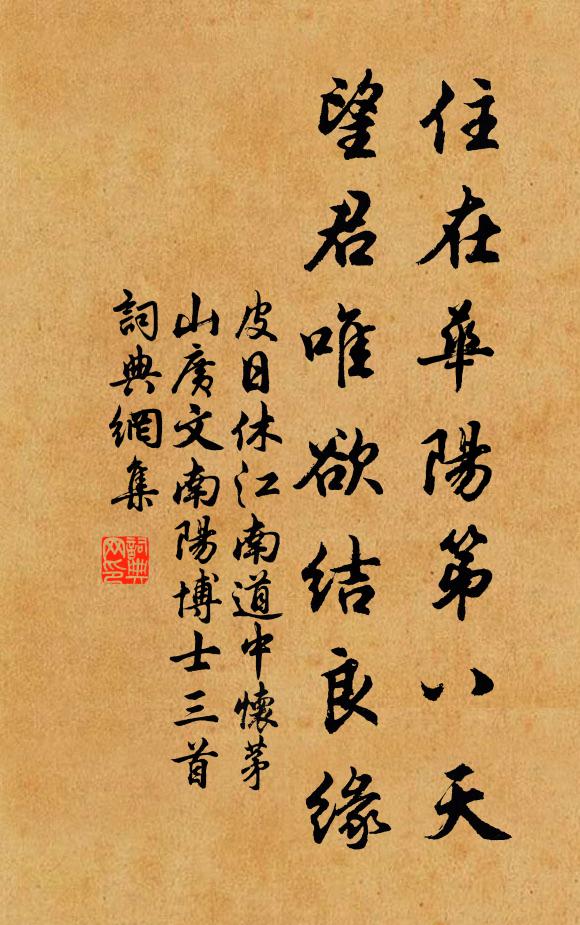 住在華陽第八天
望君唯欲結良緣
皮日休江南道中懷茅
山廣文南陽博士三首
詞典網集
詞典
网印